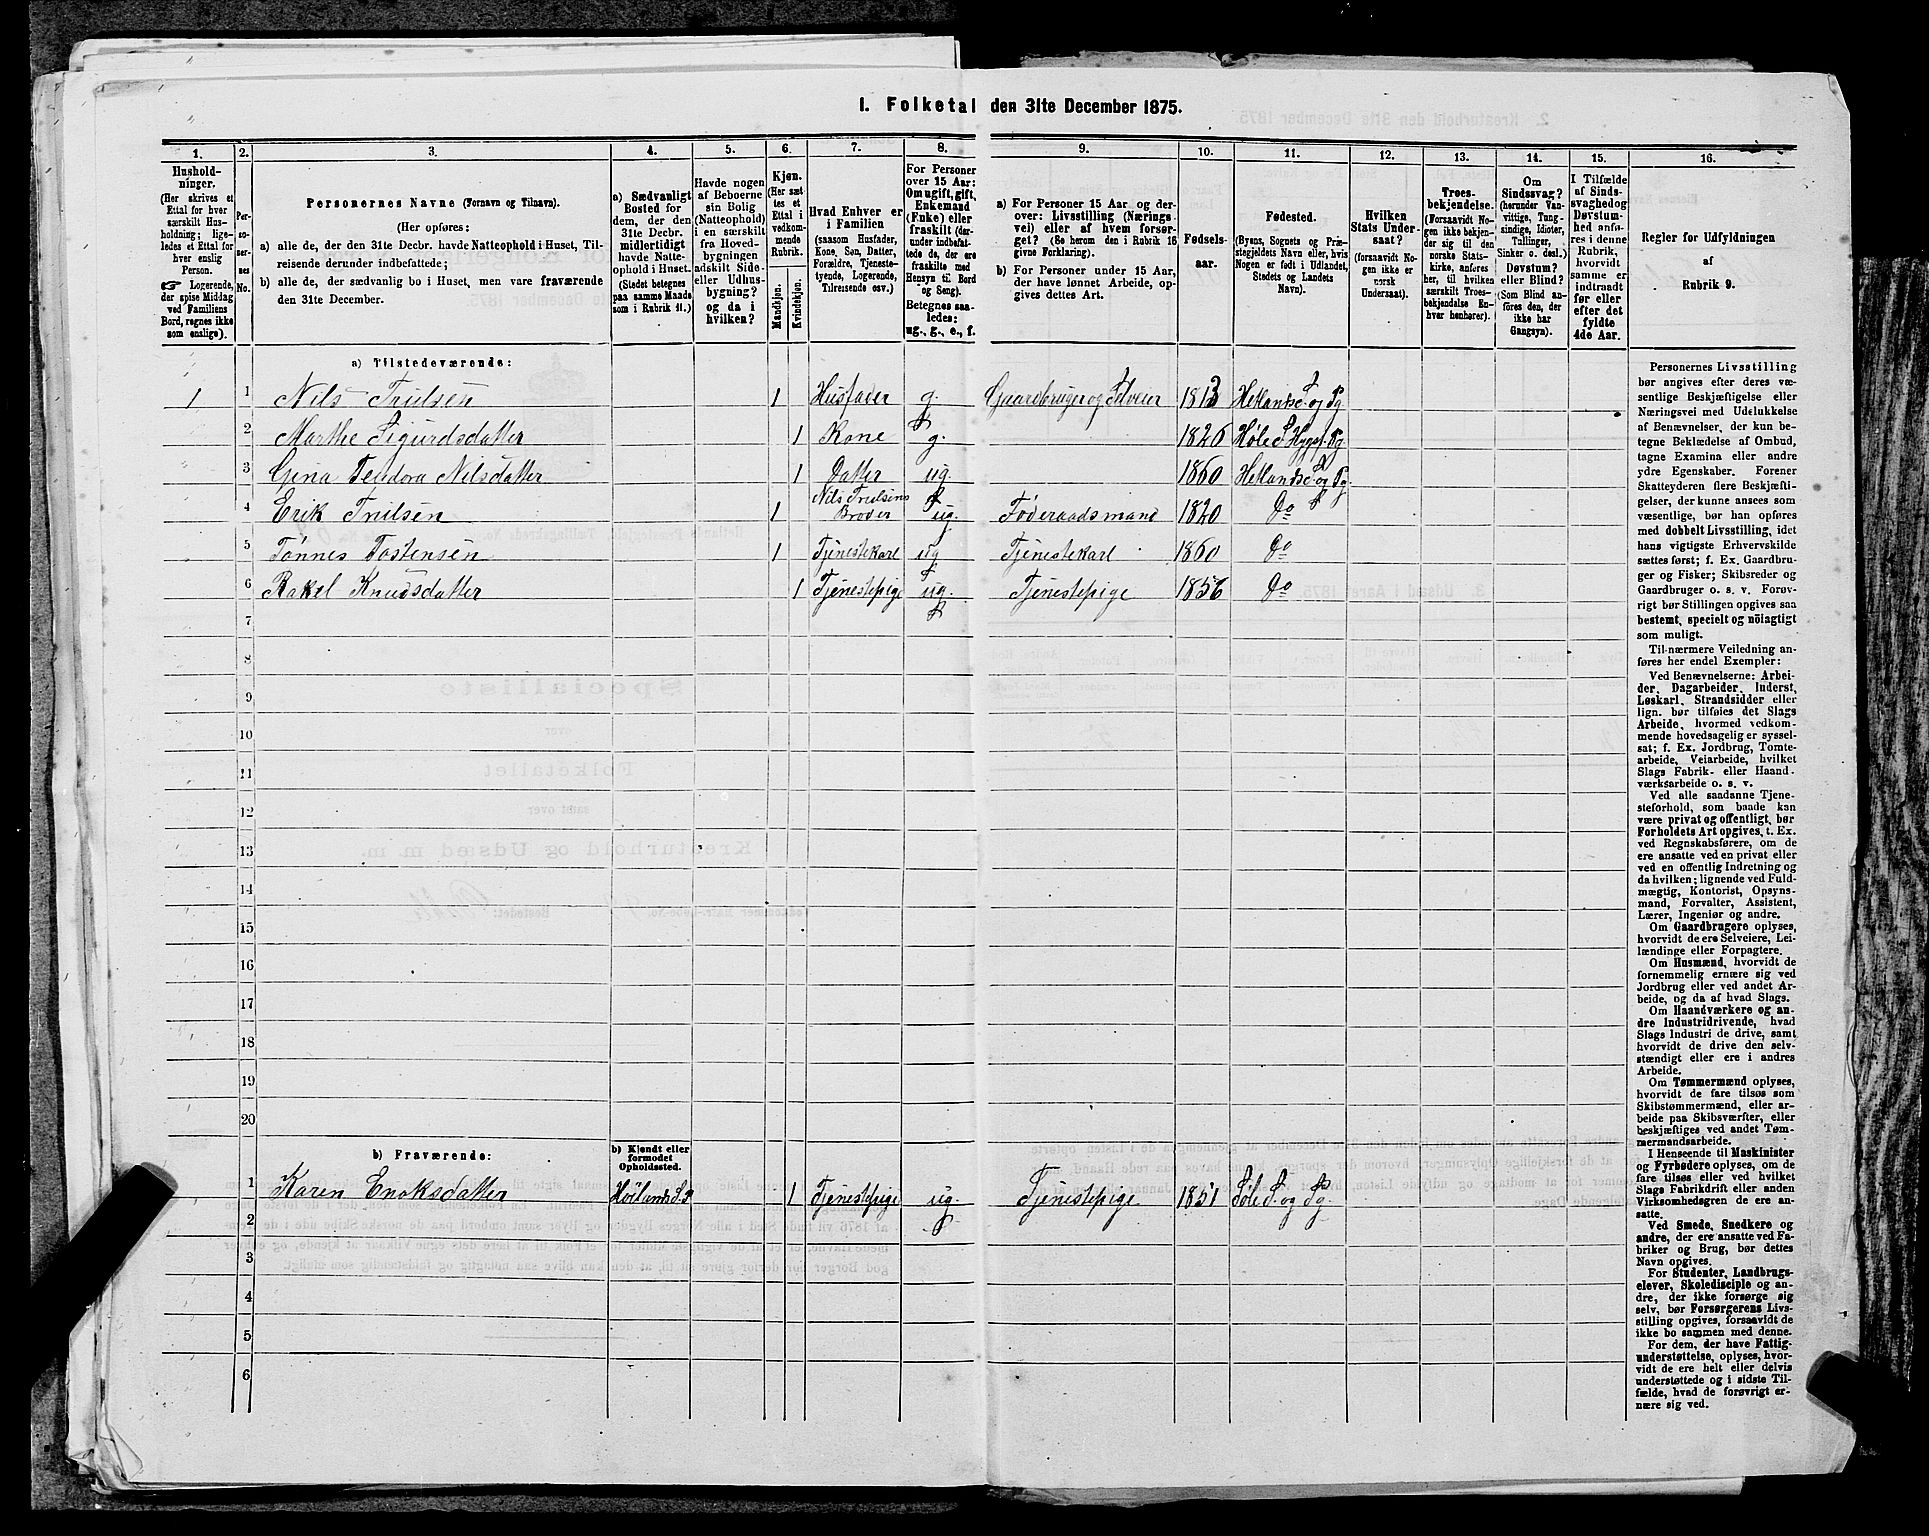 I. Folketal den 31te December 1875.
1.
Hushold-
ninger.
(Her skrives et
Ettal for hver
særskilt Hus-
holdning; lige-
ledes et Ettal for
hver enslig
Person.
☞ Logerende,
der spise Middag
ved Familiens
Bord, regnes ikke
som enslige).
2.
Per-
so-
ner-
nes
No.
3.
Personernes Navne (Fornavn og Tilnavn).
(Her opføres:
a) alle de, der den 31te Decbr. havde Natteophold i Huset, Til-
reisende derunder indbefattede;
b) alle de, der sædvanlig bo i Huset, men vare fraværende
den 31te December.
4.
a) Sædvanligt
Bosted for
dem, der den
31te Decbr.
midlertidigt
havde Natte-
ophold i Huset.
(Stedet betegnes
paa samme Maade
som i Rubrik 11.)
5.
Havde nogen
af Beboerne
sin Bolig
(Natteophold)
i en særskilt
fra Hoved-
bygningen
adskilt Side-
eller Udhus-
bygning?
og da i
hvilken?
6.
Kjøn.
(Her sæt-
tes et
Ettal i
vedkom-
mende
Rubrik.
Mandkjøn.
Kvindekjøn.
7.
Hvad Enhver er
i Familien
(saasom Husfader,
Kone, Søn, Datter,
Forældre, Tjeneste-
tyende, Logerende,
Tilreisende osv.)
8.
For Personer
over 15 Aar:
Om ugift, gift,
Enkemand
(Enke) eller
fraskilt (der-
under indbefat-
tede de, der ere
fraskilte med
Hensyn til Bord
og Seng).
Betegnes saa-
ledes:
ug., g., e., f.
9.
a) For Personer 15 Aar og der-
over: Livsstilling (Nærings-
vei) eller af hvem forsør-
get? (Se herom den i Rubrik 16
givne Forklaring).
b) For Personer under 15 Aar,
der have lønnet Arbeide, op-
gives dettes Art.
10.
Fødsels-
aar.
11.
Fødested.
(Byens, Sognets og Præ-
stegjeldets Navn eller, hvis
Nogen er født i Udlandet,
Stedets og Landets
Navn).
12.
Hvilken
Stats Under-
saat?
(forsaavidt No-
gen ikke er
norsk
Undersaat).
13.
Troes-
bekjendelse.
(Forsaavidt No-
gen ikke bekjen-
der sig til den
norske Stats-
kirke, anføres
her, til hvilken
særskilt Troes-
bekjendelse En-
hver henhører).
14.
Om
Sindssvag?
(herunder Van-
vittige, Tung-
sindige, Idioter,
Tullinger,
Sinker o. desl.)
Døvstum?
eller Blind?
(Som Blind an-
føres den, der
ikke har
Gangsyn).
15.
I Tilfælde
af Sinds-
svaghed og
Døvstum-
hed anfø-
res i denne
Rubrik,
hvorvidt
samme er
indtraadt
før eller
efter det
fyldte
4de Aar.
16.
Regler for Udfyldningen
af
Rubrik 9.
a) Tilstedeværende:
1 1 Nils Trulsen 1 Husfader g. Gaardbruger og Selveier 1813 Hetlands S. og Pg
2 Marthe Sigurdsdatter 1 Kone g. 1826 Høle S. Hygsf. Pg
3 Gina Teodora Nilsdatter 1 Datter ug. 1860 Hetlands S. og Pg
4 Erik Trulsen 1 Nils Trulsens Broder ug. Føderaadsmand 1820 Do
5 Tønnes Tostensen 1 Tjenestekarl ug Tjenestekarl 1860 Do
6 Rakel Knudsdatter 1 Tjenestepige ug. Tjenestepige 1856 Do
7
8
9
10
11
12
13
14
15
16
17
18
19
20
b) Fraværende:
b) Kjendt eller
formodet
Opholdssted.
1 Karen Enoksdatter Høilands S. 1 Tjenestepige ug. Tjenestepige 1851 Høle S. og Pg.
2
3
4
5
6
Personernes Livsstilling
bør angives efter deres væ-
sentlige Beskjæftigelse eller
Næringsvei med Udelukkelse
af Benævnelser, der kun be-
tegne Beklædelse af Ombud,
tagne Examina eller andre
ydre Egenskaber. Forener
Skatteyderen flere Beskjæfti-
gelser, der kunne ansees som
væsentlige, bør han opføres
med dobbelt Livsstilling, idet
hans vigtigste Erhvervskilde
sættes først; f. Ex. Gaardbru-
ger og Fisker; Skibsreder og
Gaardbruger o. s. v. Forøv-
rigt bør Stillingen opgives saa
bestemt, specielt og nøiagtigt
som muligt.
Til nærmere Veiledning an-
føres her endel Exempler:
Ved Benævnelserne: Arbei-
der, Dagarbeider, Inderst,
Løskarl, Strandsidder eller
lign. bør tilføies det Slags
Arbeide, hvormed vedkom-
mende hovedsagelig er syssel-
sat; f. Ex. Jordbrug, Tomte-
arbeide, Veiarbeide, hvilket
Slags Fabrik- eller Haand-
værksarbeide o. s. v.
Ved alle saadanne Tjene-
steforhold, som baade kan
være privat og offentligt, bør
Forholdets Art opgives, t. Ex.
ved Regnskabsførere, om de
ere ansatte ved en privat eller
ved en offentlig Indretning og
da hvilken; lignende ved Fuld-
mægtig, Kontorist, Opsyns-
mand, Forvalter, Assistent,
Lærer, Ingeniør og andre.
Om Gaardbrugere oplyses,
hvorvidt de ere Selveiere, Lei-
lændinge eller Forpagtere.
Om Husmænd, hvorvidt de
fornemmelig ernære sig ved
Jordbrug eller ved andet Ar-
beide, og da af hvad Slags.
Om Haandværkere og an-
dre Industridrivende, hvad
Slags Industri de drive, samt
hvorvidt de drive den selv-
stændigt eller ere i andres
Arbeide.
Om Tømmermænd oplyses,
hvorvidt de fare tilsøs som
Skibstømmermænd, eller ar-
beide paa Skibsværfter, eller
beskjæftiges ved andet Tøm-
mermandsarbeide.
I Henseende til Maskinister
og Fyrbødere oplyses, om de
fare tilsøs eller ved hvilket
Slags Fabrikdrift eller anden
Virksomhedsgren de ere an-
satte.
Ved Smede, Snedkere og
andre, der ere ansatte ved Fa-
briker og Brug, bør dettes
Navn opgives.
For Studenter, Landbrugs-
elever, Skoledisciple og an-
dre, der ikke forsørge sig
selv, bør Forsørgerens Livs-
stilling opgives, forsaavidt de
ikke bo sammen med denne.
For dem, der have Fattig-
understøttelse, oplyses, hvor-
vidt de ere helt eller delvis
understøttede og i sidste Til-
fælde, hvad de forøvrigt er-
nære sig ved.